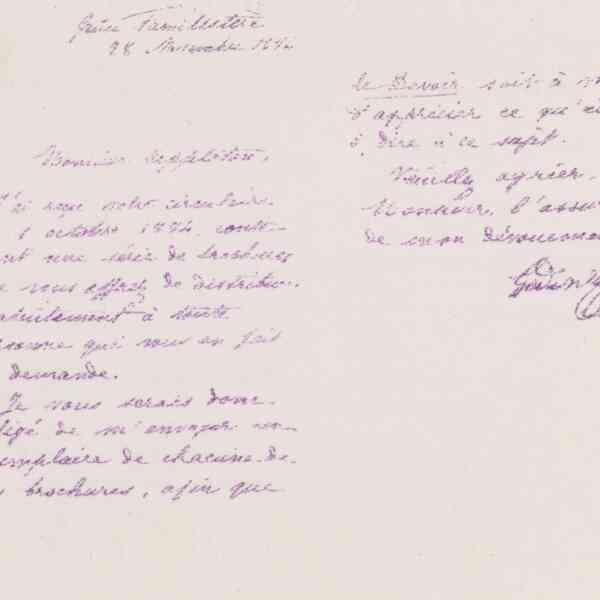 Guise Familistère
28 Novembre 1894
Monsieur Appleton,
J'ai reçu votre circulaire
1 octobre 1894, conte-
nt une série de brochures
e vous offrez de distribu-
atuitement à toute
rsonne qui vous en fait
demande.
Je vous serais donc
ligé de m'envoyer un
emplaire de chacune de
s brochures, afin que
le Devoir soit à m
d'apprécier ce qu'i
à dire à ce sujet.
Veuillez agréer,
Monsieur, l'assu
de mon dévouemen